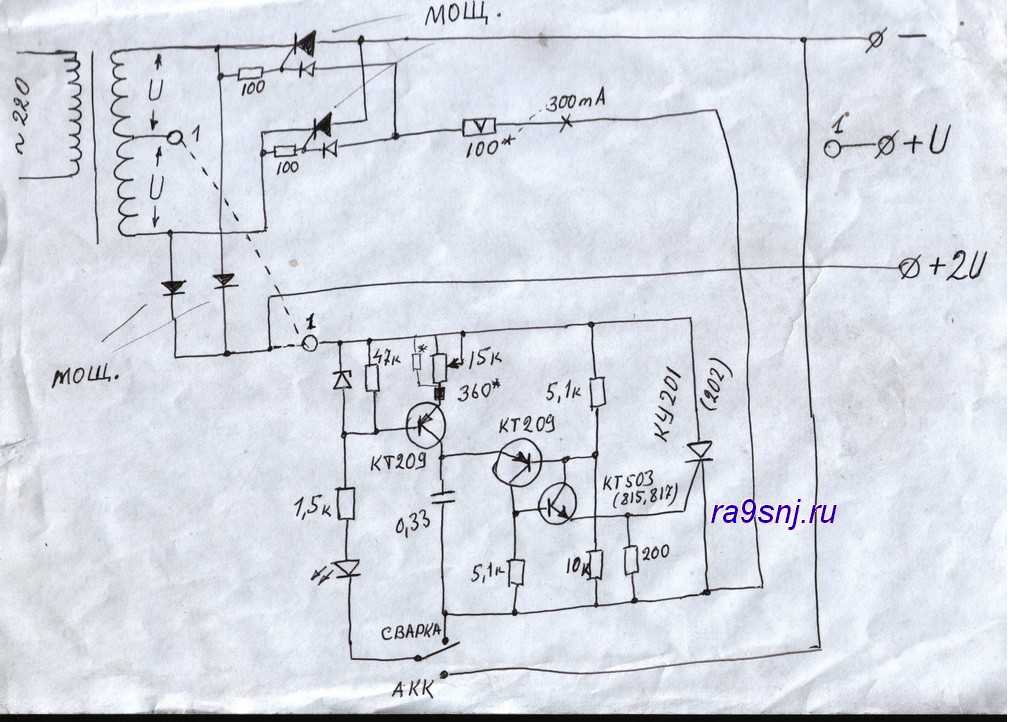 МОЩ.
~220
U
U
1
100
100
100*
300mA
—
1
+U
+2U
МОЩ.
1
47к
*
15к
360*
5,1к
КУ201
(202)
КТ209
КТ209
КТ503
(815,817)
1,5к
0,33
5,1к
10к
200
СВАРКА
АКК
ra9snj.ru